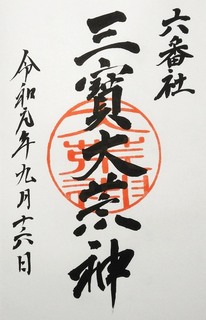 六番社
三寳大荒神
令和元年九月十六日